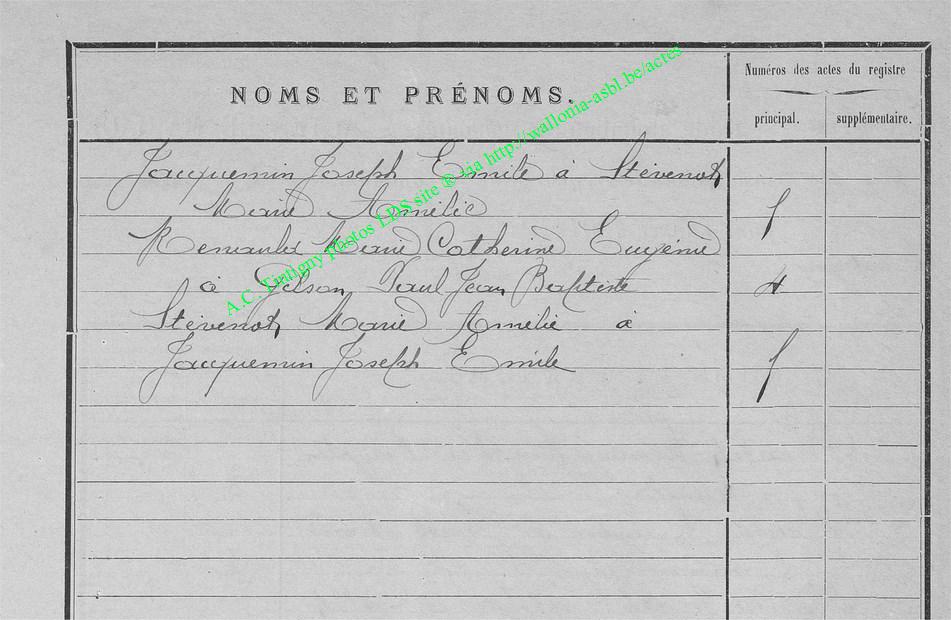 NOMS ET PRÉNOMS.
Numéros des actes du registre
principal.
supplémentaire.
Jacquemin Joseph Emile à Stévenot
Marie Amélie
Renauld Marie Catherine Eugénie
à Gilson Paul Jean Baptiste 4
Stévenot Marie Amélie à
Jacquemin Joseph Emile
A.C. Tintigny photos LDS site ® via http://wallonia-asbl.be/actes